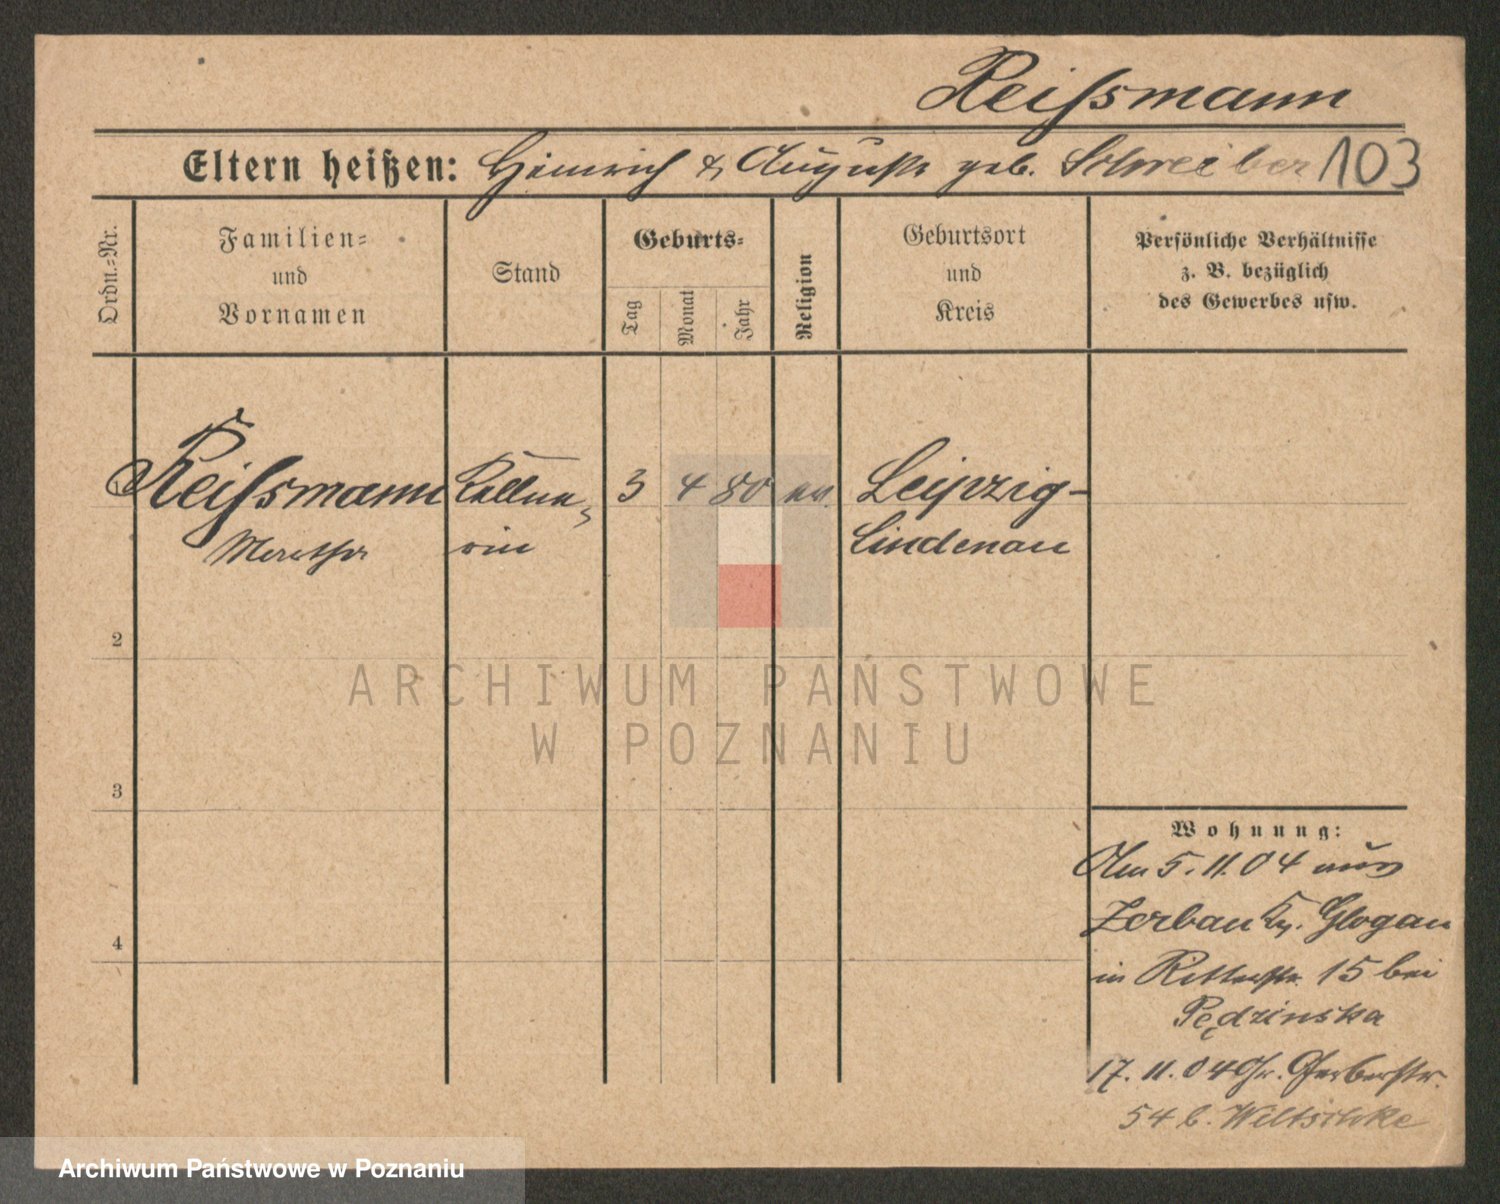 Reiſsmann
Eltern heißen: Heinrich & Auguste geb. Schreiber 103
Ordn.-Nr.
Familien-
und
Vornamen
Stand
Geburts-
Tag
Monat
Jahr
Religion
Geburtsort
und
Kreis
Persönliche Verhältnisse
z. B. bezüglich
des Gewerbes usw.
Reiſsmann Kellne-
rin
3 4 80 ev. Leipzig-
Lindenau
2
3
4
Wohnung:
Am 5.11.04 aus
Zerbau Kr. Glogau
in Ritterstr. 15 bei
Pędzinska
17.11.04 Gr. Gerberstr.
54 b. Wiltschke
ARCHIWUM PAŃSTWOWE
W POZNANIU
Archiwum Państwowe w Poznaniu